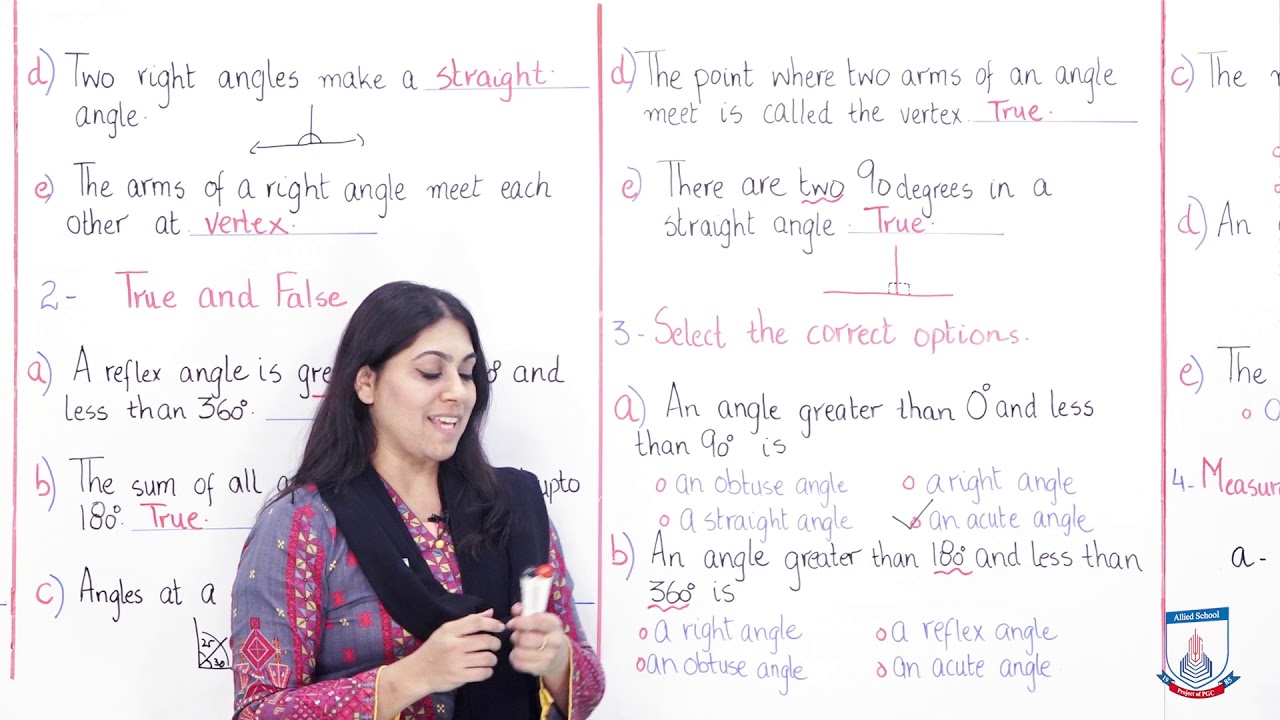 d) Two right angles make a straight.
angle.
e) The arms of a right angle meet each
other at vertex.
2- True and False
a) A reflex angle is gre and
less than 360°.
b) The sum of all upto
180°. True.
c) Angles at a
25°
30
d) The point where two arms of an angle
meet is called the vertex. True.
e) There are two 90 degrees in a
straight angle. True.
3- Select the correct options.
a) An angle greater than 0° and less
than 90° is
an obtuse angle a right angle
a straight angle an acute angle
b) An angle greater than 180° and less than
360° is
a right angle a reflex angle
an obtuse angle an acute angle
c) The
d) An
e) The
4- Measur
a-
Allied School
19 85
Project of PGC